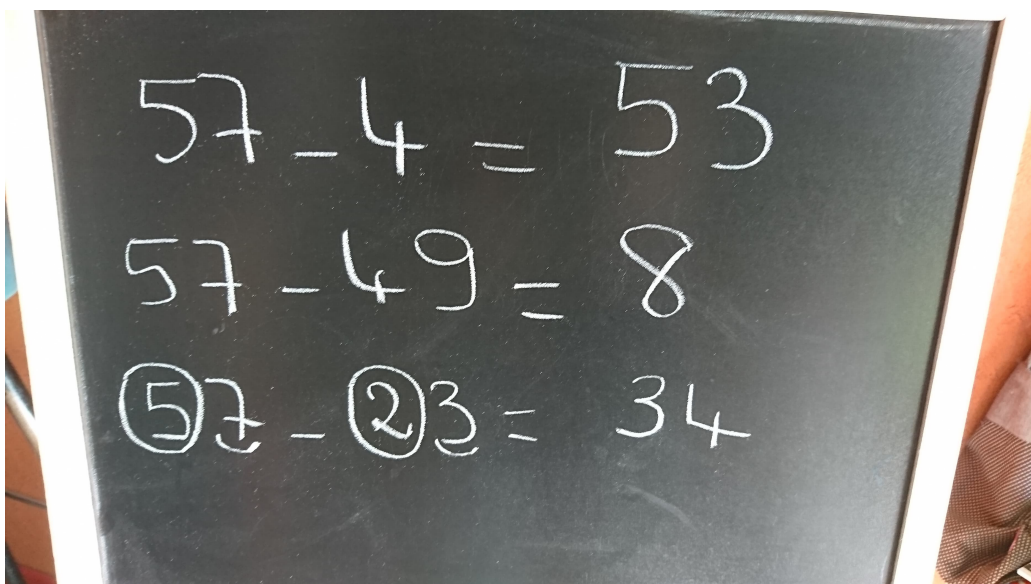 57 - 4 = 53
57 - 49 = 8
57 - 23 = 34